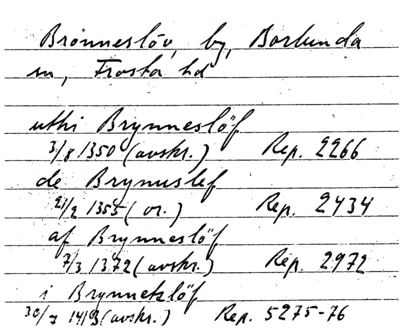 Brönneslöv, by, Borlunda
sn, Frosta hd
uthi Brynneslöf
3/8 1350 (avskr.) Rep. 2266
de Brynuslef
21/2 1355 (or.) Rep. 2434
af Brynneslöf
7/3 1372 (avskr.) Rep. 2972
i Brynnetzlöf
30/7 1419 (avskr.) Rep. 5275-76